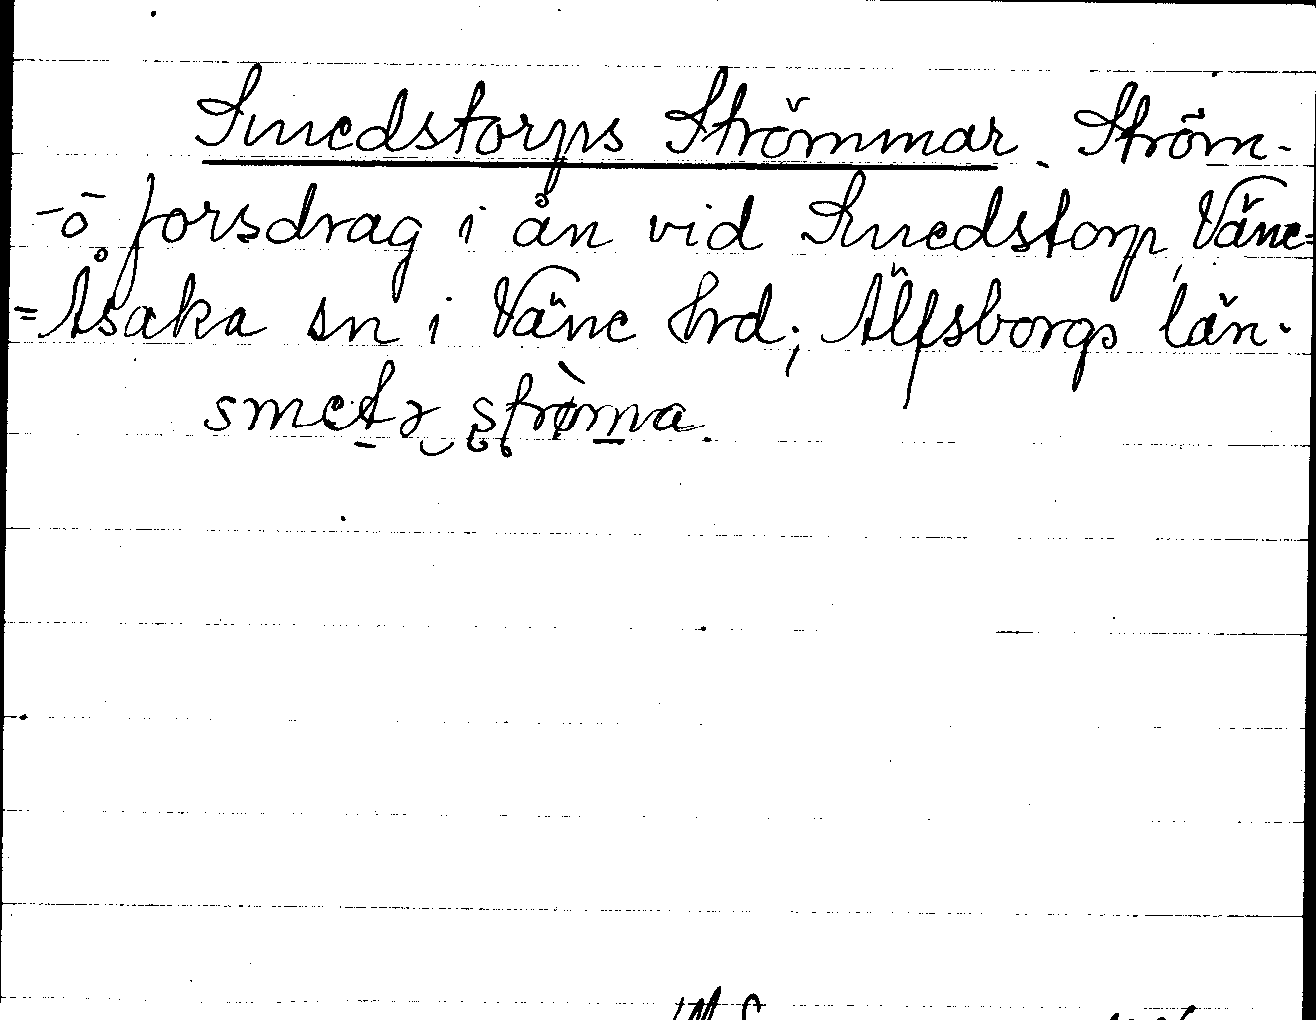 Smedstorps Strömmar. Ström-
-o. forsdrag i ån vid Smedstorp, Väne=
=Åsaka sn i Väne Hrd; Älfsborgs län.